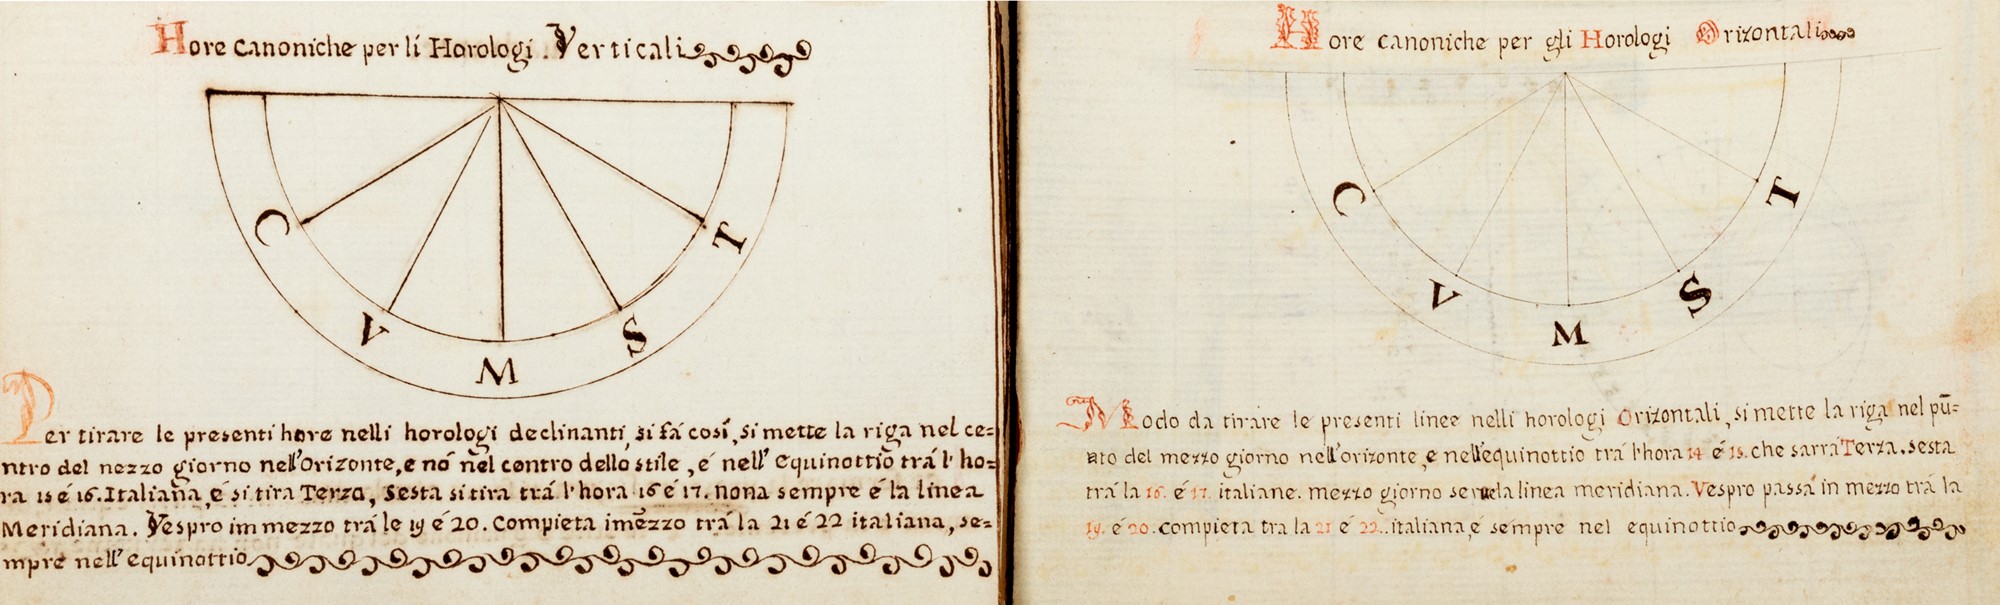 Hore canoniche per li Horologi. Verticali
C
V
M
S
T
Per tirare le presenti hore nelli horologi declinanti, si fá cosí, si mette la riga nel ce=
ntro del nezzo giorno nell'Orizonte, e nó nel centro dello stile, é nell' Equinottio trá l' ho=
ra 15 é 16. Italiana, é si tira Terza, Sesta si tira trá l'hora 16 é 17. nona sempre é la linea
Meridiana. Vespro im mezzo trá le 19 é 20. Compieta imezzo trá la 21 é 22 italiana, se=
mpre nell' equinottio
Hore canoniche per gli Horologi Orizontali
C
V
M
S
T
Modo da tirare le presenti linee nelli horologi Orizontali, si mette la riga nel pū=
nto del mezzo giorno nell'orizonte, e nell'equinottio trá l'hora 14 é 15. che sarrá Terza. Sesta
trá la 16. é 17. italiane. mezzo giorno la linea meridiana. Vespro passa in mezzo trá la
19. é 20. Compieta tra la 21 é 22. italiana, é sempre nel equinottio